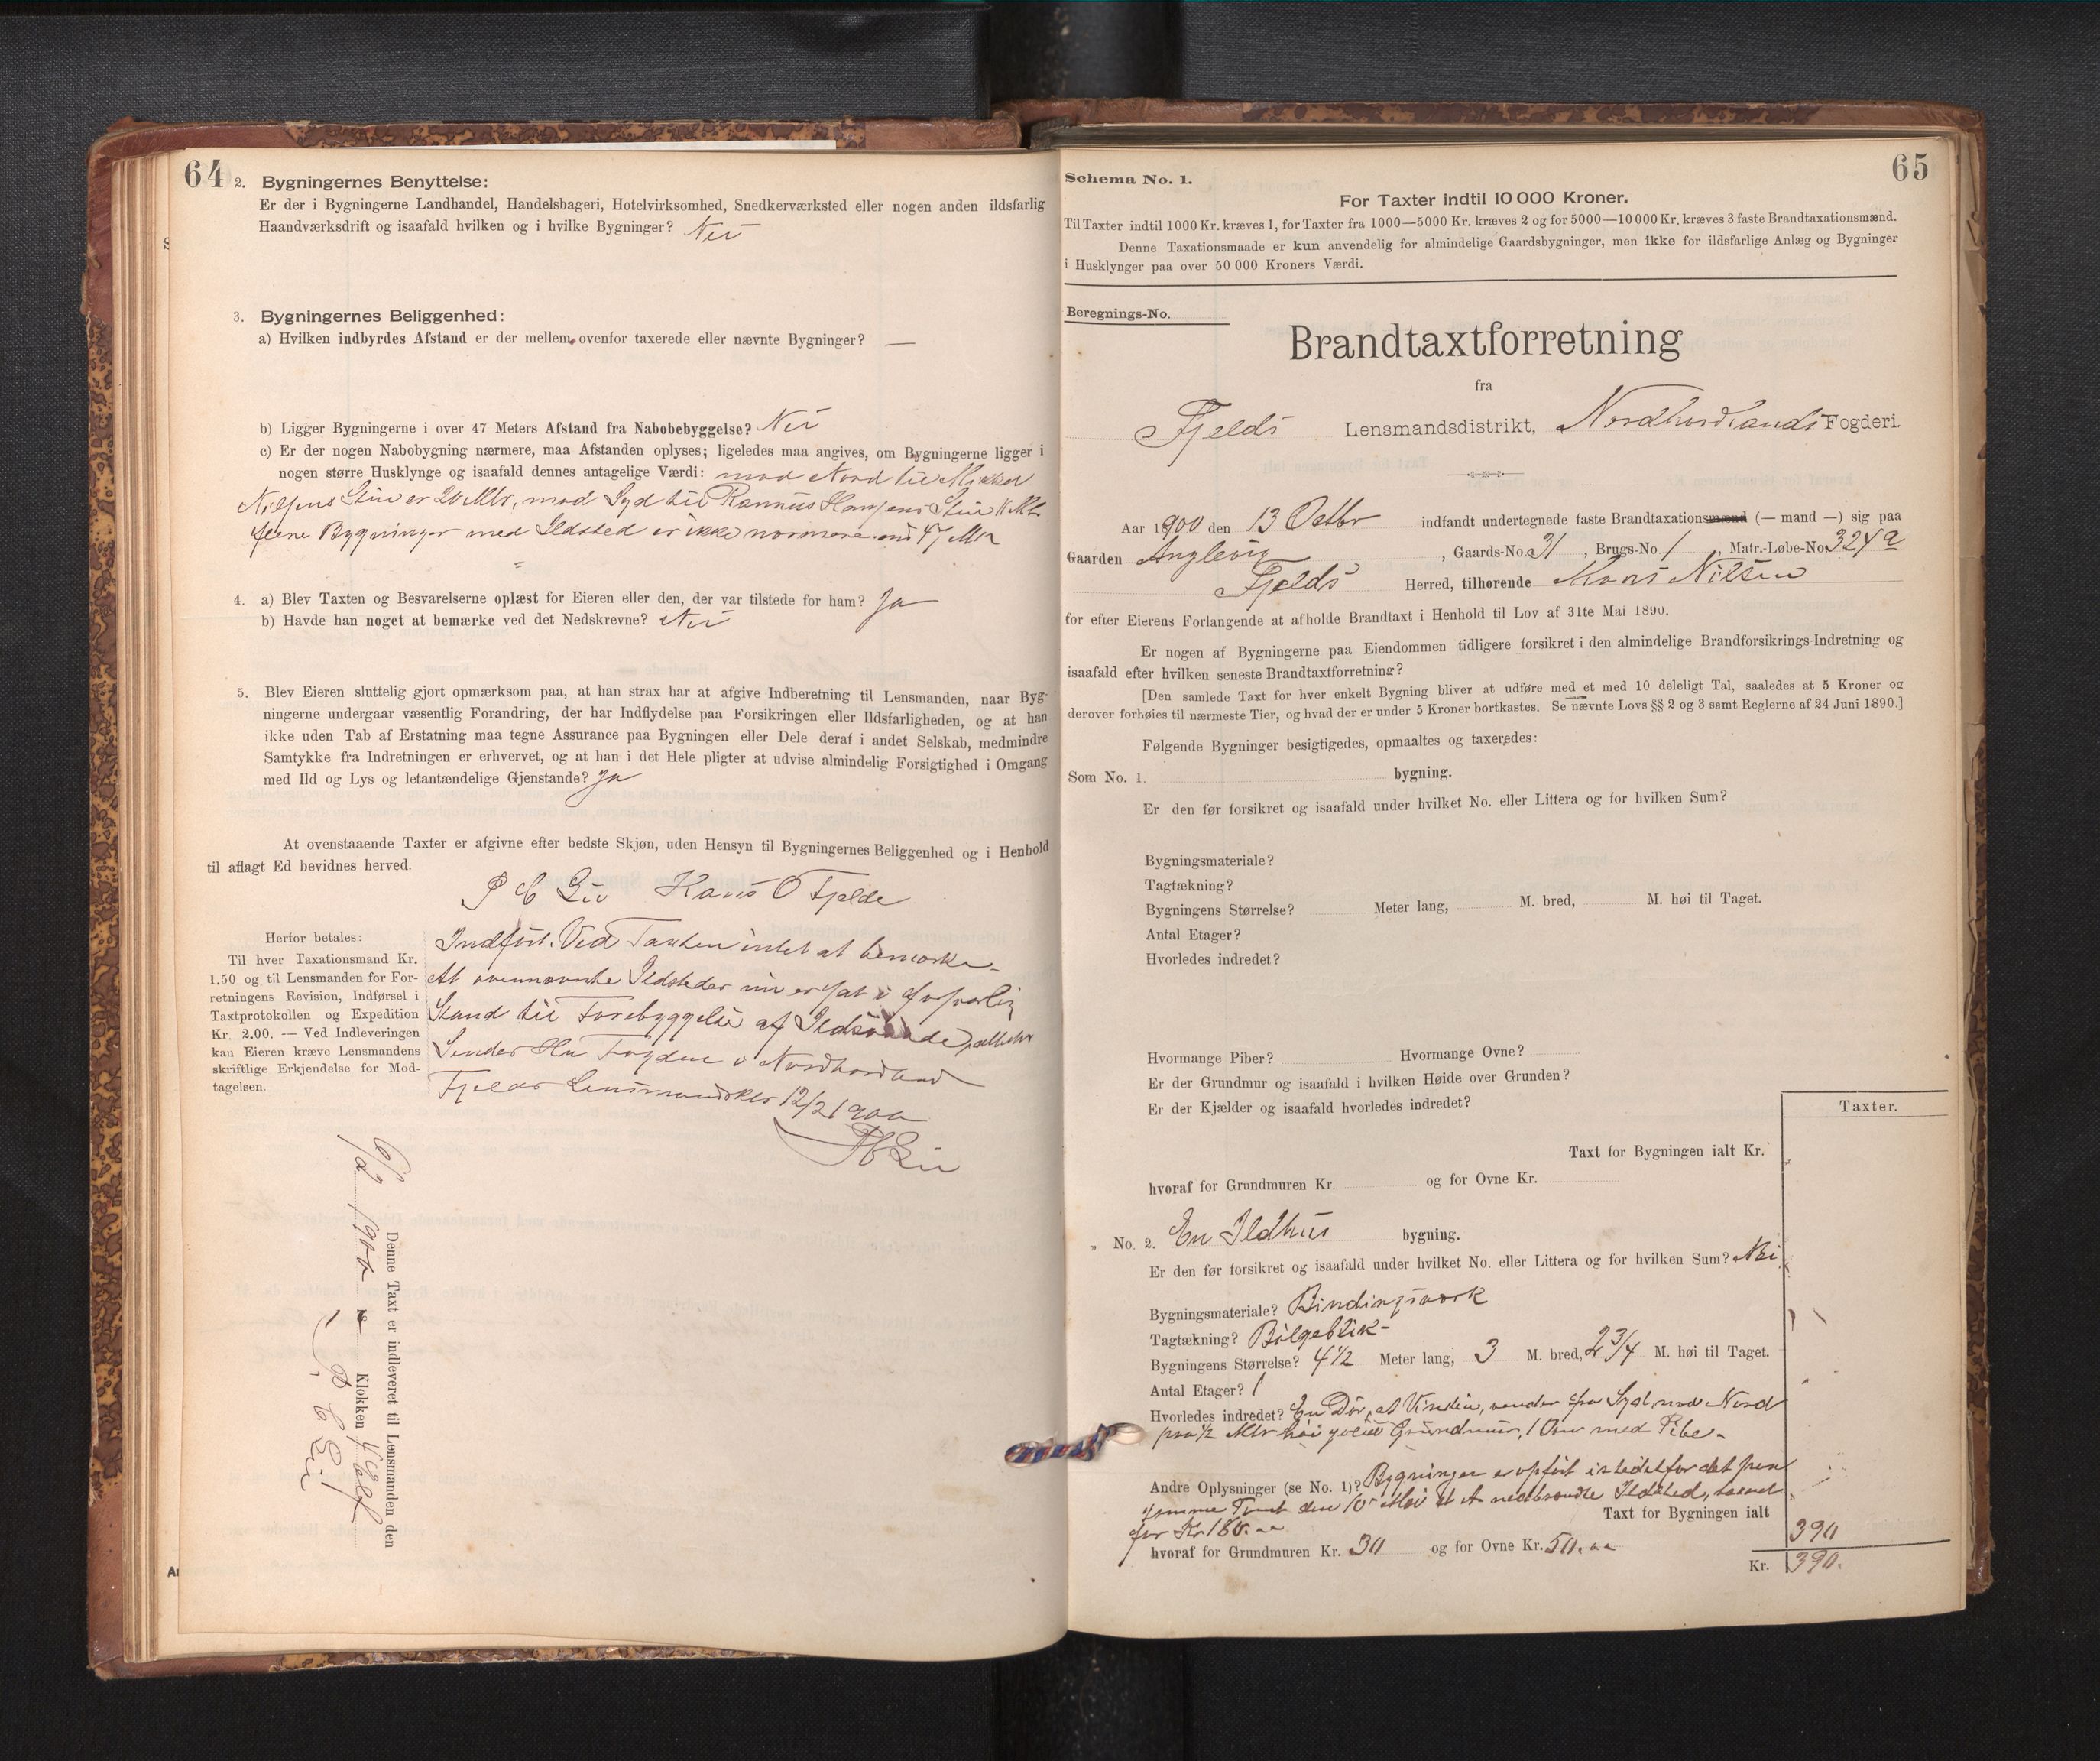 64
2. Bygningernes Benyttelse:
Er der i Bygningerne Landhandel, Handelsbageri, Hotelvirksomhed, Snedkerværksted eller nogen anden ildsfarlig
Haandværksdrift og isaafald hvilken og i hvilke Bygninger? Nei
3. Bygningernes Beliggenhed:
a) Hvilken indbyrdes Afstand er der mellem ovenfor taxerede eller nævnte Bygninger? —
b) Ligger Bygningerne i over 47 Meters Afstand fra Nabobebyggelse? Nei
c) Er der nogen Nabobygning nærmere, maa Afstanden oplyses; ligeledes maa angives, om Bygningerne ligger i
nogen større Husklynge og isaafald dennes antagelige Værdi: mod Nord til Mikkel
Nilsens Stue er 20 Mtr, mod Syd til Rasmus Hansens Stue 11 Mtr
flere Bygninger med Ildsted er ikke nærmere end 47 Mtr
4. a) Blev Taxten og Besvarelserne oplæst for Eieren eller den, der var tilstede for ham? Ja
b) Havde han noget at bemærke ved det Nedskrevne? Nei
5. Blev Eieren sluttelig gjort opmærksom paa, at han strax har at afgive Indberetning til Lensmanden, naar Byg-
ningerne undergaar væsentlig Forandring, der har Indflydelse paa Forsikringen eller Ildsfarligheden, og at han
ikke uden Tab af Erstatning maa tegne Assurance paa Bygningen eller Dele deraf i andet Selskab, medmindre
Samtykke fra Indretningen er erhvervet, og at han i det Hele pligter at udvise almindelig Forsigtighed i Omgang
med Ild og Lys og letantændelige Gjenstande? Ja
At ovenstaaende Taxter er afgivne efter bedste Skjøn, uden Hensyn til Bygningernes Beliggenhed og i Henhold
til aflagt Ed bevidnes herved.
P C Lie Hans O Fjelde
Herfor betales:
Til hver Taxationsmand Kr.
1.50 og til Lensmanden for For-
retningens Revision, Indførsel i
Taxtprotokollen og Expedition
Kr. 2.00. — Ved Indleveringen
kan Eieren kræve Lensmandens
skriftlige Erkjendelse for Mod-
tagelsen.
Indført. Ved Taxten intet at bemærke
At ovennævnte Ildsteder nu er sat i forsvarlig
Stand til Forebyggelse af Ildsvaade,
Sendes Hr Fogden i Nordhordland
Fjelds Lensmandsktr 12/2 1900
PCLie
Denne Taxt er indleveret til Lensmanden den
6/2 1900 Klokken 11 Elef
P C Lie
65
Schema No. 1.
For Taxter indtil 10 000 Kroner.
Til Taxter indtil 1000 Kr. kræves 1, for Taxter fra 1000—5000 Kr. kræves 2 og for 5000—10 000 Kr. kræves 3 faste Brandtaxationsmænd.
Denne Taxationsmaade er kun anvendelig for almindelige Gaardsbygninger, men ikke for ildsfarlige Anlæg og Bygninger
i Husklynger paa over 50 000 Kroners Værdi.
Beregnings-No.
Brandtaxtforretning
fra
Fjelds Lensmandsdistrikt, Nordhordlands Fogderi.
Aar 1900 den 13 Octbr indfandt undertegnede faste Brandtaxationsmænd (— mand —) sig paa
Gaarden Anglevig, Gaards-No. 31, Brugs-No 1, Matr.-Løbe-No. 324a
Fjelds Herred, tilhørende Mons Nilsen
for efter Eierens Forlangende at afholde Brandtaxt i Henhold til Lov af 31te Mai 1890.
Er nogen af Bygningerne paa Eiendommen tidligere forsikret i den almindelige Brandforsikrings-Indretning og
isaafald efter hvilken seneste Brandtaxtforretning?
[Den samlede Taxt for hver enkelt Bygning bliver at udføre med et med 10 deleligt Tal, saaledes at 5 Kroner og
derover forhøies til nærmeste Tier, og hvad der er under 5 Kroner bortkastes. Se nævnte Lovs §§ 2 og 3 samt Reglerne af 24 Juni 1890.]
Følgende Bygninger besigtigedes, opmaaltes og taxeredes:
Som No. 1. bygning.
Er den før forsikret og isaafald under hvilket No. eller Littera og for hvilken Sum?
Bygningsmateriale?
Tagtækning?
Bygningens Størrelse? Meter lang, M. bred, M. høi til Taget.
Antal Etager?
Hvorledes indredet?
Hvormange Piber? Hvormange Ovne?
Er der Grundmur og isaafald i hvilken Høide over Grunden?
Er der Kjælder og isaafald hvorledes indredet?
Taxter.
Taxt for Bygningen ialt Kr.
hvoraf for Grundmuren Kr. og for Ovne Kr.
„ No. 2. En Ildhus bygning.
Er den før forsikret og isaafald under hvilket No. eller Littera og for hvilken Sum? Nei
Bygningsmateriale? Bindingsverk
Tagtækning? Bølgeblik
Bygningens Størrelse? 4 1/2 Meter lang, 3 M. bred, 2 3/4 M. høi til Taget.
Antal Etager? 1
Hvorledes indredet? En Dør, et Vindu, vender fra Syd mod Nord
paa 1/2 Mtr høi Grundmur, 1 Ovn med Pibe
Andre Oplysninger (se No. 1)? Bygningen er opført istedetfor det paa
samme Tomt den 10 Mai nedbrændte Ildsted,
for Kr 180.
Taxt for Bygningen ialt 390
hvoraf for Grundmuren Kr. 30 og for Ovne Kr. 50.
Kr. 390.